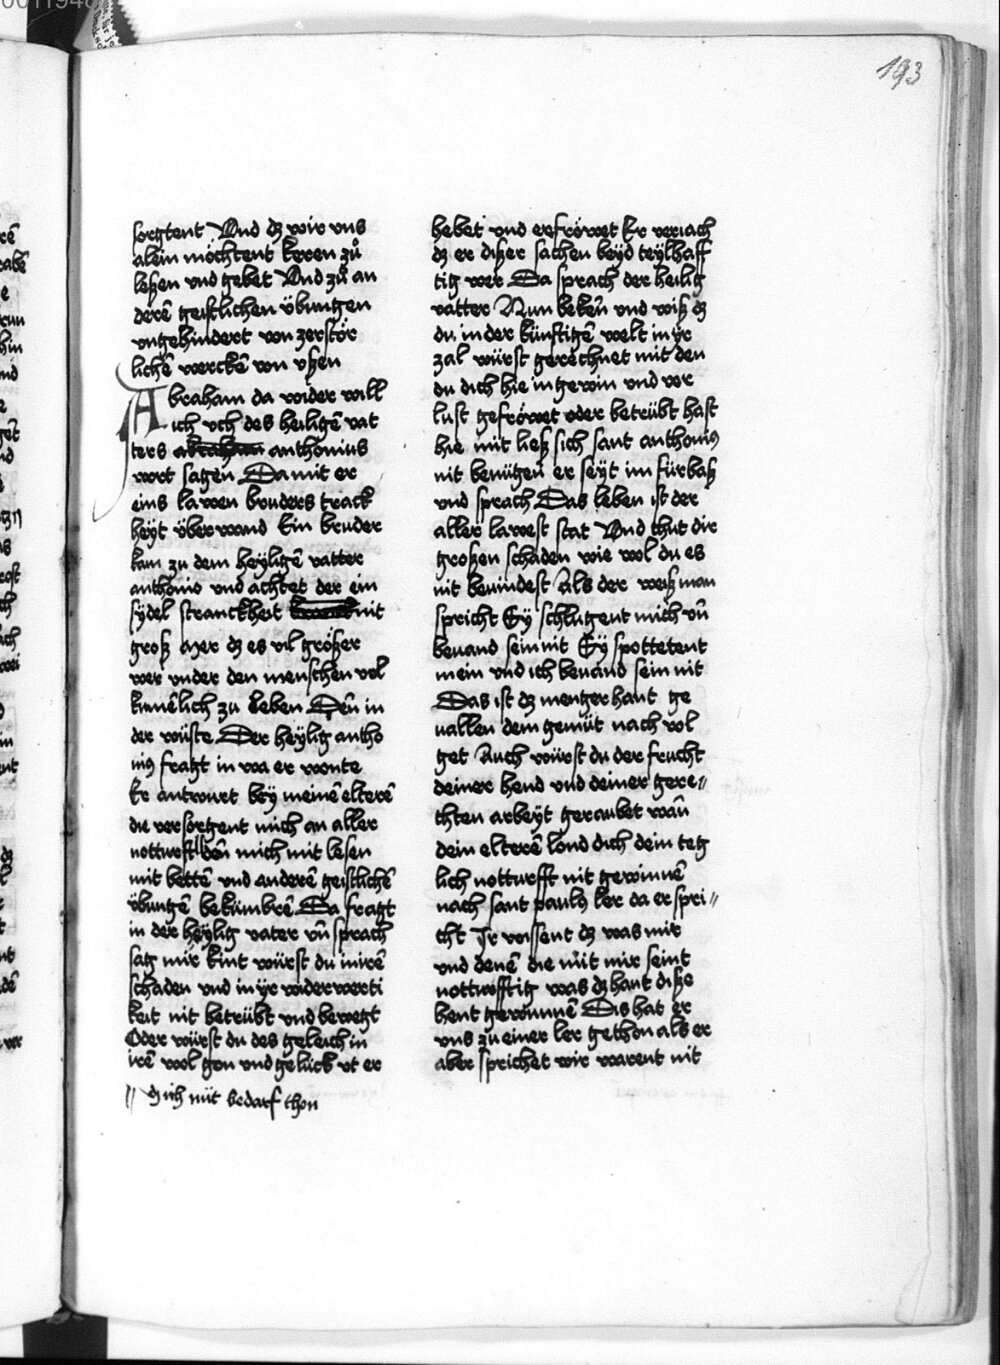 193
sorgtent Und dz wir vns
alein möchtent keren zů
leßen vnd gebet Und zů an
derē geistlichen übungen
ungehindert von zerstör
lichē wercken von vßen
Abraham da wider will
ich vch des heiligē vat
ters abraham anthonius
wort sagen Da mit er
eins lawen bruders track
heÿt über wand Ein bruder
kam zu dem heÿligē vatter
anthonio vnd achtet der ein
sÿdel stranckheit nit
groß Mer dz es vil größer
wer vnder den menschen vol
kumēlich zu leben Den in
der wüste Der heÿlig antho
nius fragt in wa er wonte
Er antwurt beÿ meinē elterē
die versorgent mich an aller
notturft den mich mit lesen
mit bettē vnd anderē geistlichē
übungē bekümbrē Da fragt
in der heÿlig vater vn̄ sprach
sag mir kint würst du in irē
schaden vnd in ÿr widerwerti
keit nit betrübt vnd bewegt
Oder würst du des geleich in
irē wol gon vnd gelück vt er
// dz ich nüt bedarf thon
hebet vnd erfröwet Er veriach
dz er dißer sachen beÿd teÿlhaff
tig wer Da sprach der heilig
vatter Nun beken vnd wiß dz
du in der künftigē welt in ÿr
zal würst gerechnet mit den
du dich hie in gewin vnd ver
lust gefröwet oder betrübt hast
hie mit ließ sich sant anthonius
nit benügen er seÿt im fürbaß
vnd sprach Das leben ist der
aller lawest stat Und thut dir
großen schaden wie wol du es
nit bevindest Als der weiß man
spricht Sÿ schlugent mich vn̄
bevand sein nit Sÿ spottetent
mein vnd ich bevand sein nit
Das ist dz menger hant ge
uallen dem gemüt nach vol
get Auch würst du der frucht
deiner hend vnd deiner gere//
chten arbeÿt geraubet wan̄
dein elterē lond dich dein teg
lich notturfft nit gewinnē
nach sant paulus ler da er spri//
cht Ir wissent dz was mir
vnd denē die mit mir seint
notturfftig was dz hant diße
hent gewunnē Dis hat er
vns zu einer ler gethon als er
aber sprichet wir warent nit